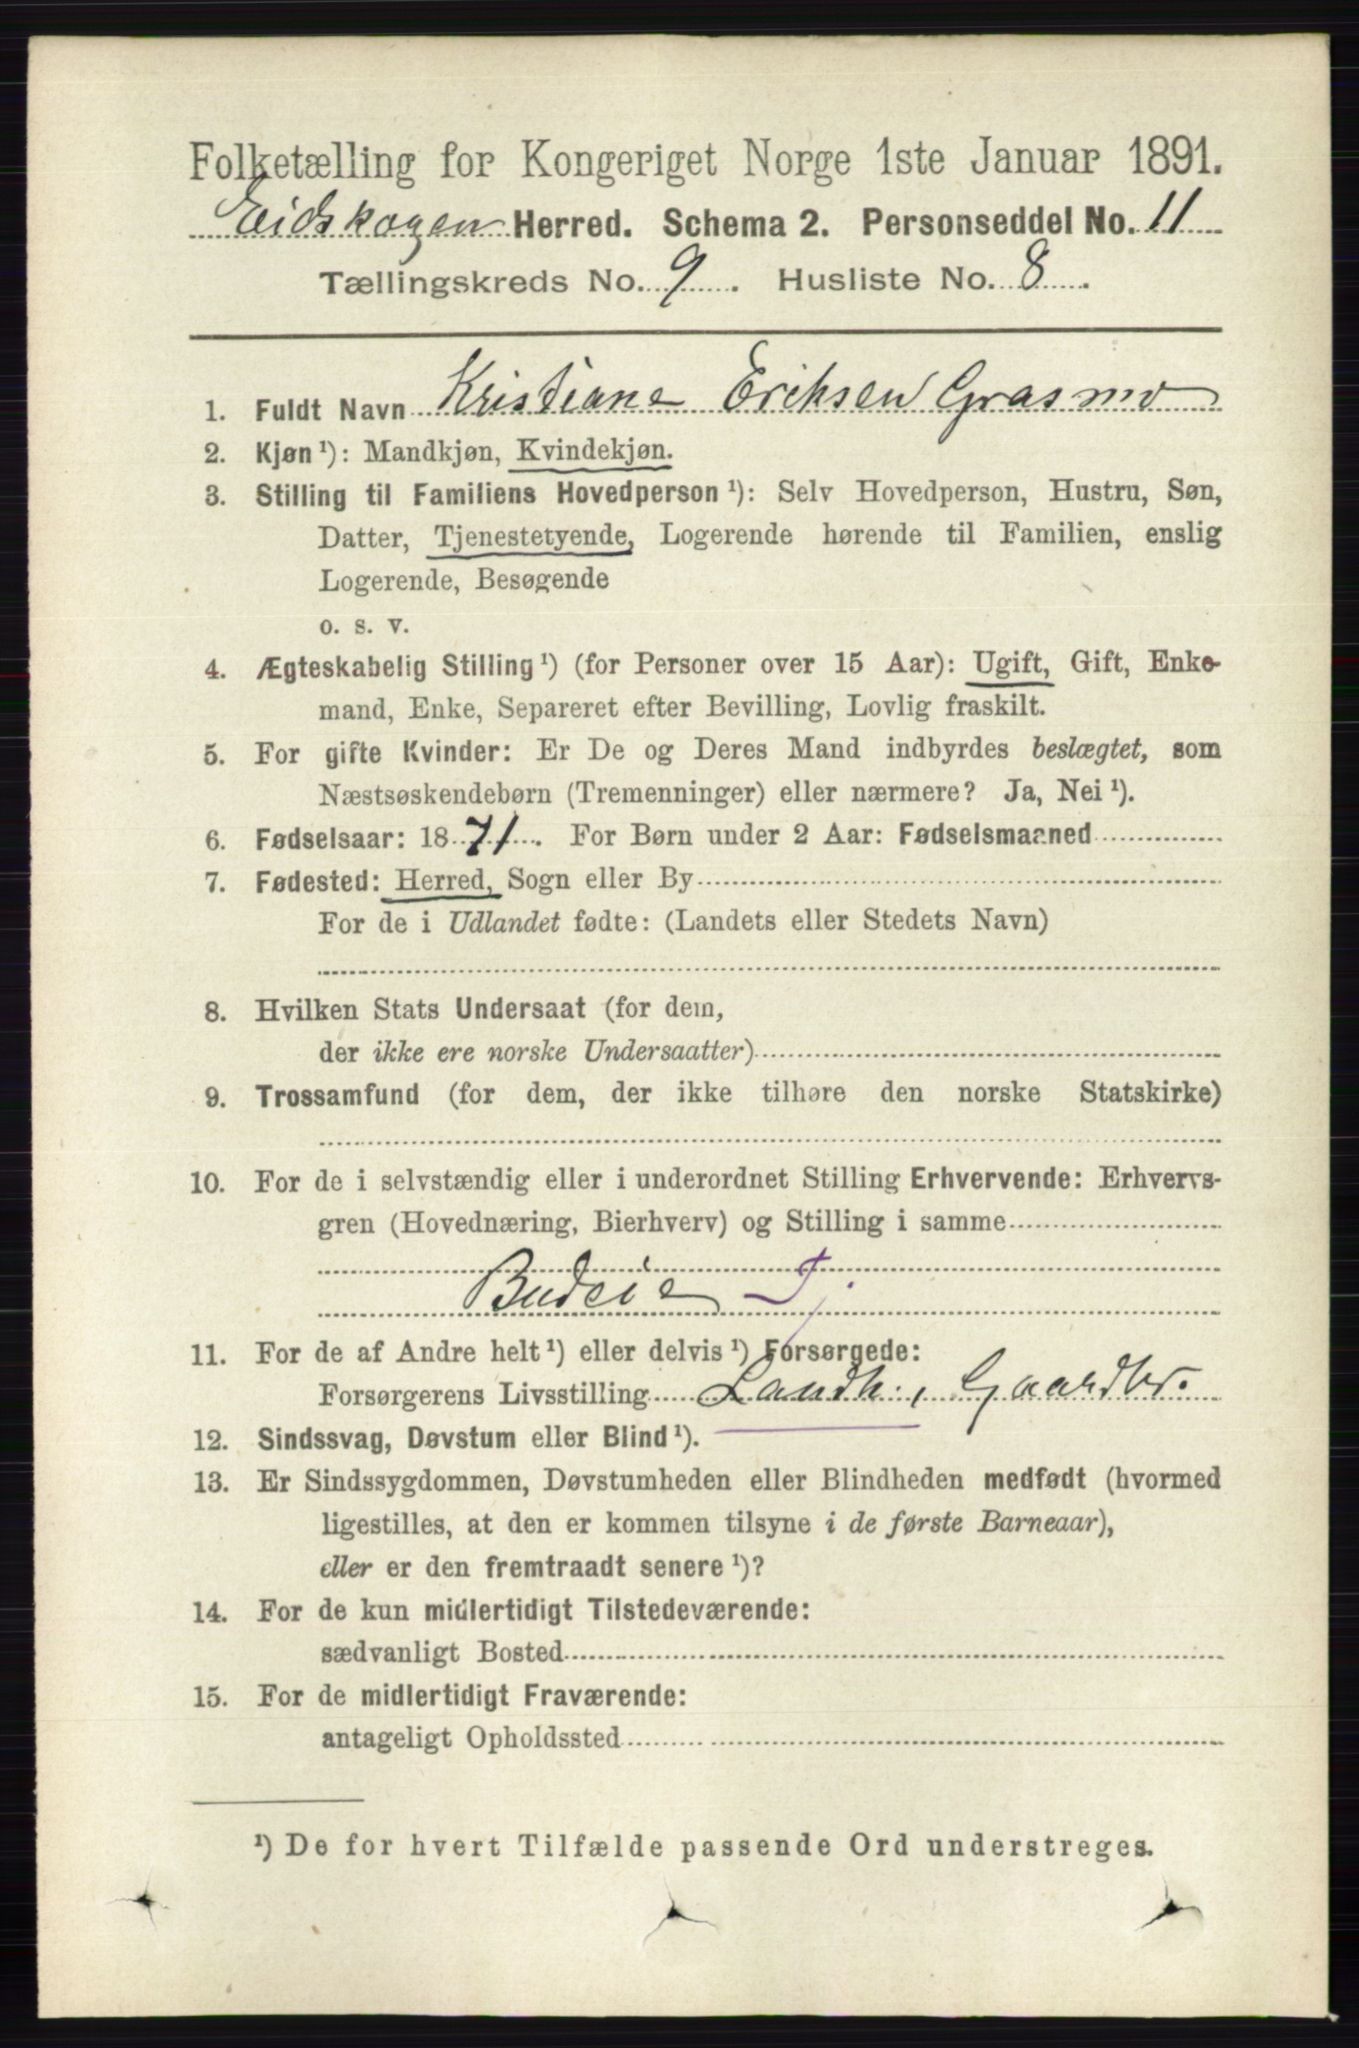 Folketælling for Kongeriget Norge 1ste Januar 1891.
Eidskogen Herred. Schema 2. Personseddel No. 11
Tællingskreds No. 9. Husliste No. 8.
1. Fuldt Navn Kristiane Eriksen Grasmo
2. Kjøn ¹): Mandkjøn, Kvindekjøn.
3. Stilling til Familiens Hovedperson ¹): Selv Hovedperson, Hustru, Søn,
Datter, Tjenestetyende, Logerende hørende til Familien, enslig
Logerende, Besøgende
o. s. v.
4. Ægteskabelig Stilling ¹) (for Personer over 15 Aar): Ugift, Gift, Enke-
mand, Enke, Separeret efter Bevilling, Lovlig fraskilt.
5. For gifte Kvinder: Er De og Deres Mand indbyrdes beslægtet, som
Næstsøskendebørn (Tremenninger) eller nærmere? Ja, Nei ¹).
6. Fødselsaar: 1871. For Børn under 2 Aar: Fødselsmaaned
7. Fødested: Herred, Sogn eller By
For de i Udlandet fødte: (Landets eller Stedets Navn)
8. Hvilken Stats Undersaat (for dem,
der ikke ere norske Undersaatter)
9. Trossamfund (for dem, der ikke tilhøre den norske Statskirke)
10. For de i selvstændig eller i underordnet Stilling Erhvervende: Erhvervs-
gren (Hovednæring, Bierhverv) og Stilling i samme
Budeie Tj
11. For de af Andre helt ¹) eller delvis ¹) Forsørgede:
Forsørgerens Livsstilling Landh., Gaardbr.
12. Sindssvag, Døvstum eller Blind ¹).
13. Er Sindssygdommen, Døvstumheden eller Blindheden medfødt (hvormed
ligestilles, at den er kommen tilsyne i de første Barneaar),
eller er den fremtraadt senere ¹)?
14. For de kun midlertidigt Tilstedeværende:
sædvanligt Bosted
15. For de midlertidigt Fraværende:
antageligt Opholdssted
¹) De for hvert Tilfælde passende Ord understreges.